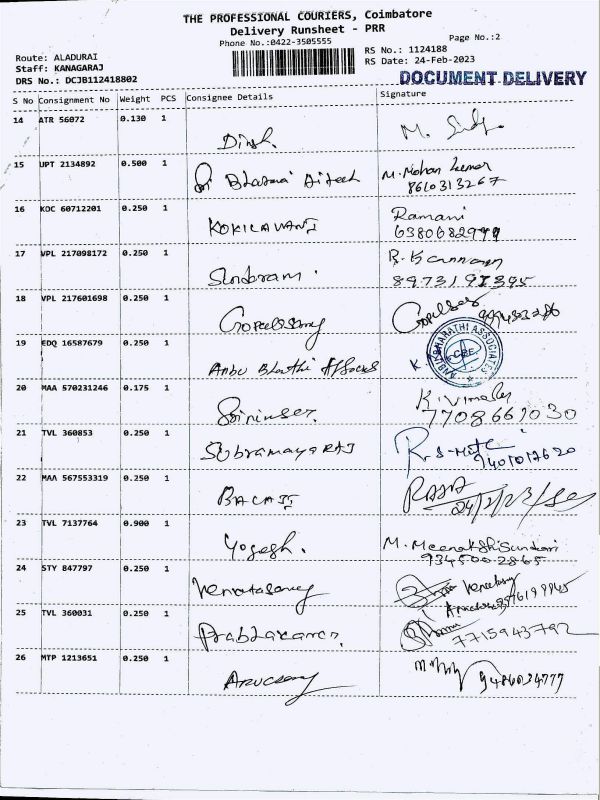 THE PROFESSIONAL COURIERS, Coimbatore
Delivery Runsheet - PRR
Phone No.:0422-3505555
Page No.:2
Route: ALADURAI
RS No.: 1124188
Staff: KANAGARAJ
RS Date: 24-Feb-2023
DRS No.: DCJB112418802
DOCUMENT DELIVERY
S No Consignment No Weight PCS Consignee Details Signature
14 ATR 56072 0.130 1
Dinsh.
15 UPT 2134892 0.500 1
M. Mohan Kumar
Sri Bharani Hitech
8610313267
16 KOC 60712201 0.250 1
Ramani
KOKILAVANI
17 VPL 217098172 0.250 1
R. Kannan
Sundram.
18 VPL 217601698 0.250 1
19 EDQ 16587679 0.250 1
ANBU BHARATHI ASSOCIATES
CBE
Anbu Bharathi Assoces
20 MAA 570231246 0.175 1
7708661030
21 TVL 360853 0.250 1
22 MAA 567553319 0.250 1
RAJA
BALAJI
24/2/23
23 TVL 7137764 0.900 1
M. Meenakshi Sundari
Yogesh.
9345002865
24 STY 847797 0.250 1
25 TVL 360031 0.250 1
Prabhakaren.
7715943792
26 MTP 1213651 0.250 1
9486034777